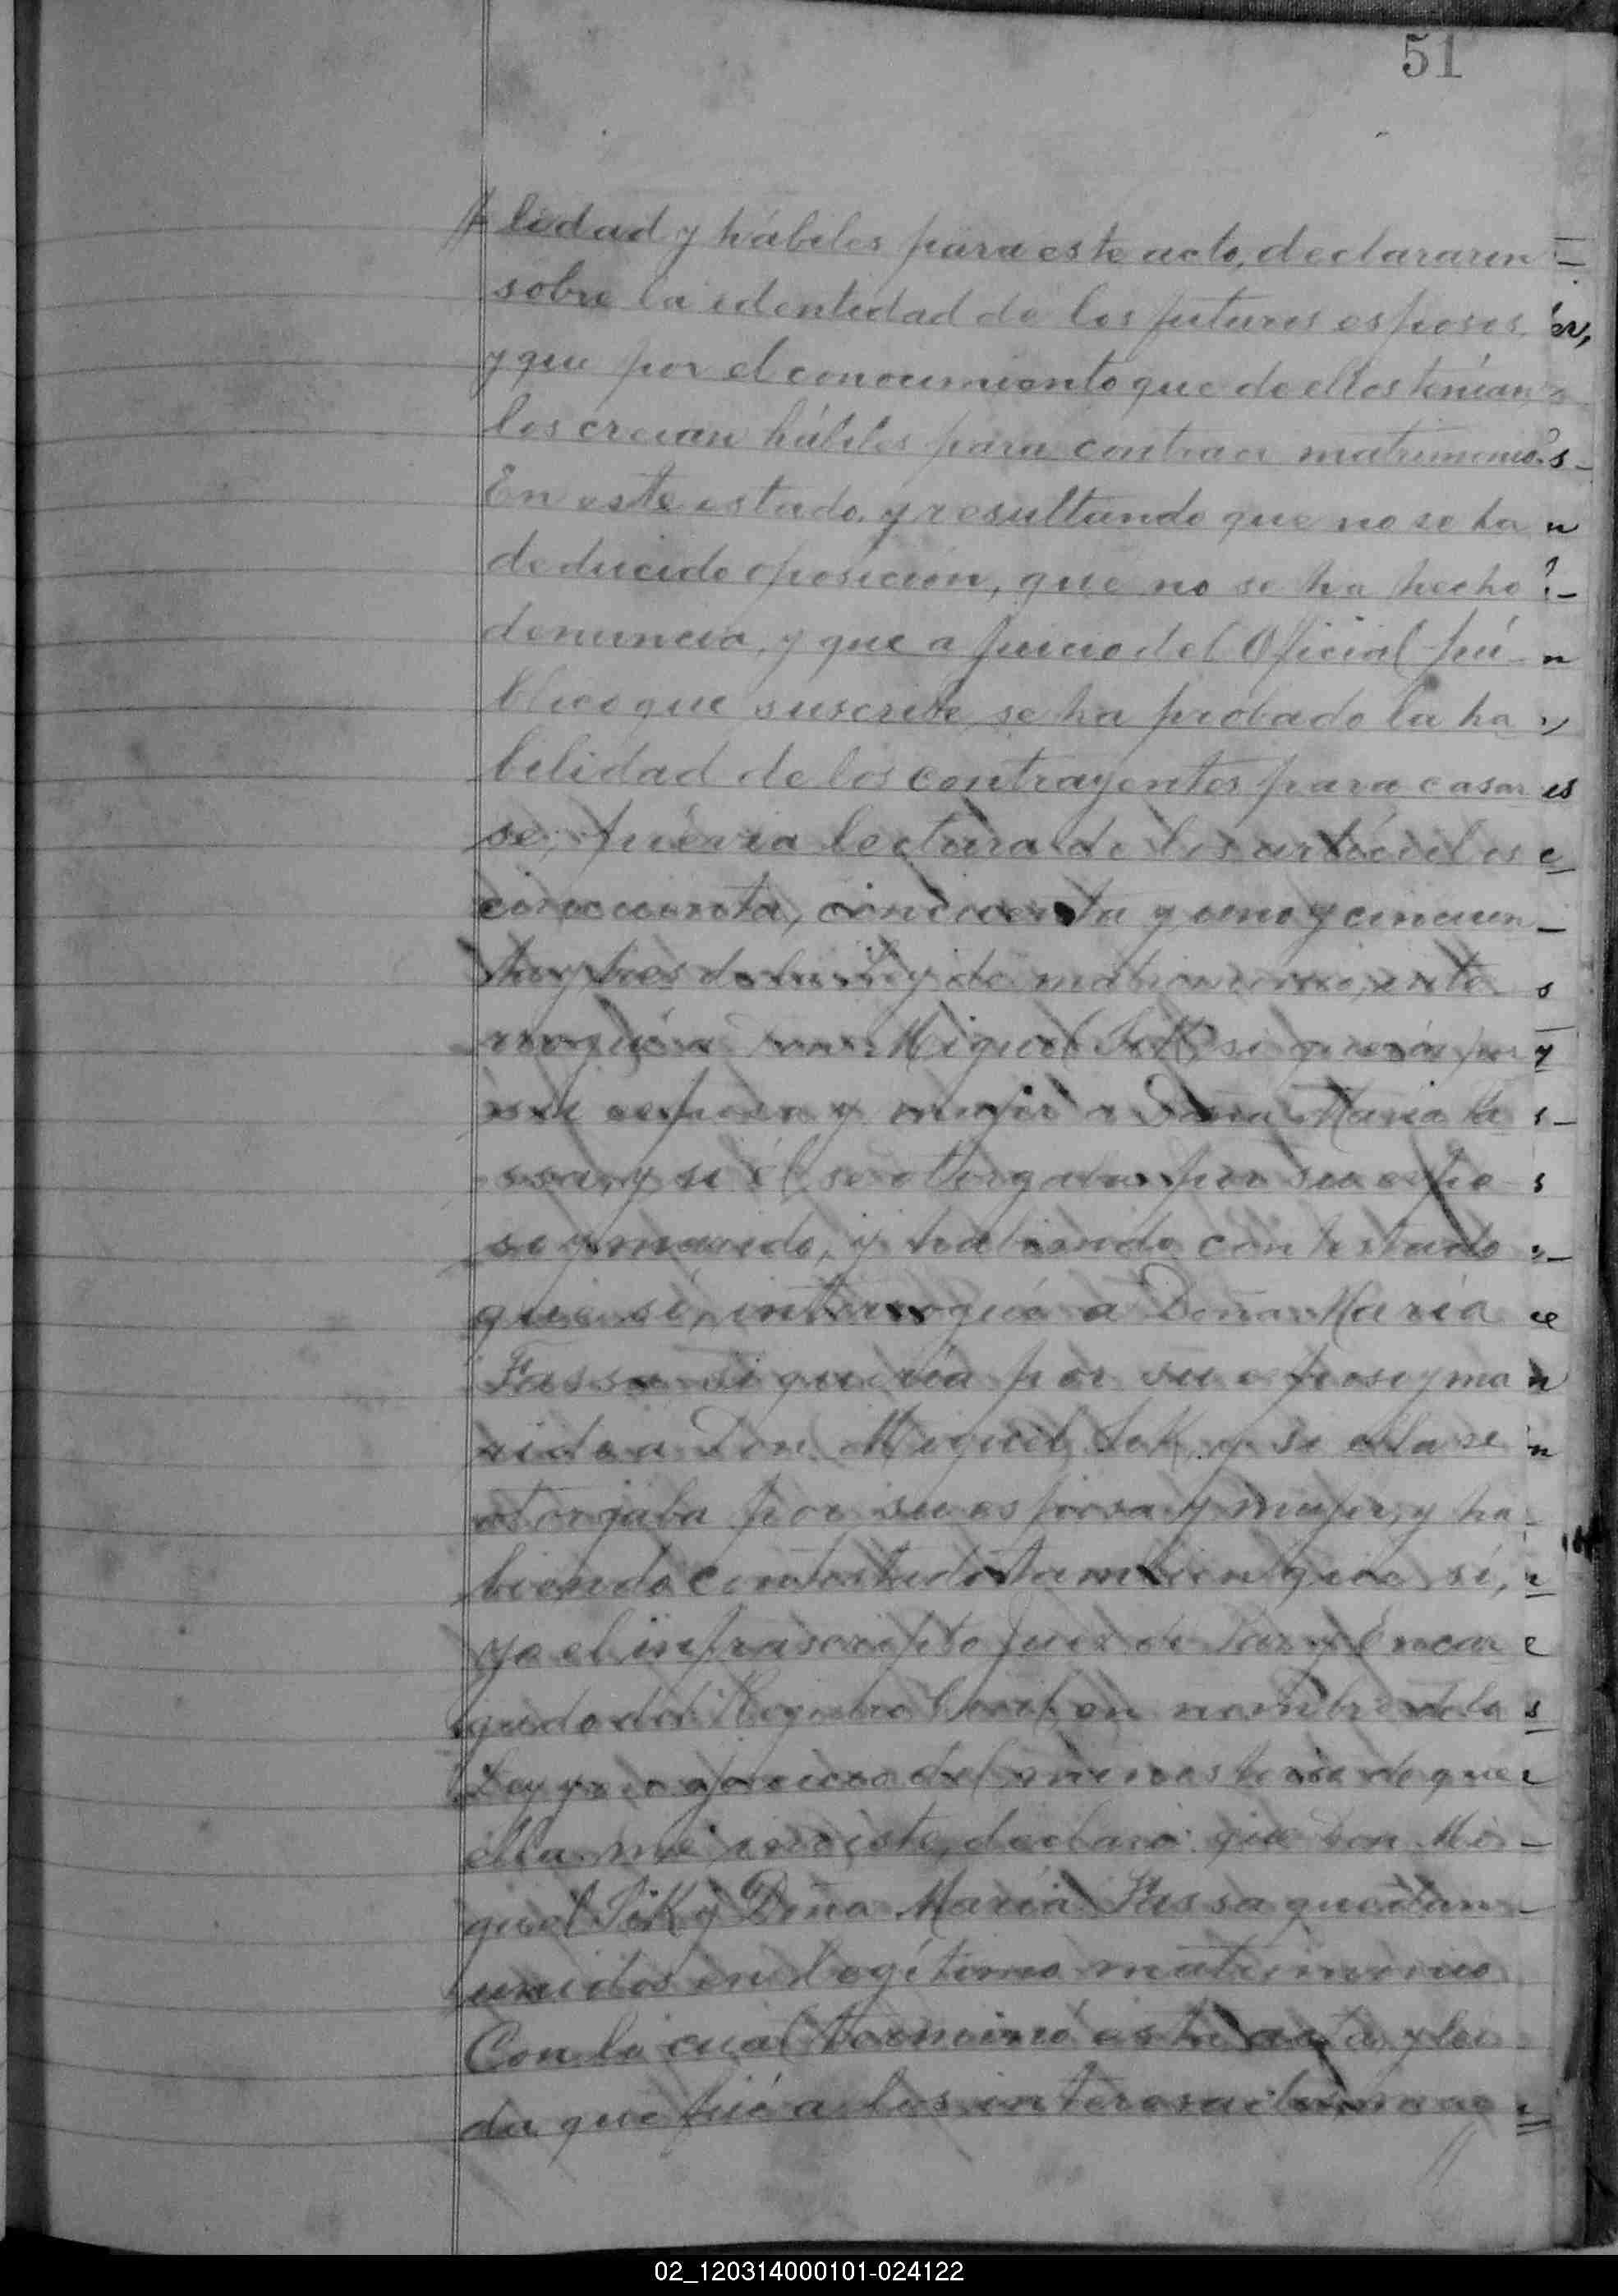 51
lidad y hábiles para este acto, declararon
sobre la identidad de los futuros esposos,
y que por el conocimiento que de ellos tenían,
los creian hábiles para contraer matrimonio.
En este estado, y resultando que no se ha
deducido oposición, que no se ha hecho
denuncia, y que a juicio del Oficial pú-
blico que suscribe, se ha probado la ha
bilidad de los contrayentes para casar
se, previa lectura de los artículos
cincuenta, cincuenta y uno y cincuen
ta y tres de la Ley de matrimonio, inte
rrogué a Don Miguel si quería por
su esposa y mujer a Doña María Fa
ssa, y si él se otorgaba por su espo
so y marido, y habiendo contestado
que sí, interrogué a Doña María
Fassa si quería por su esposo y ma
rido a Don Miguel y si ella se
otorgaba por su esposa y mujer, y ha
biendo contestado tambien que sí,
yo el infrascripto Juez de Paz y Encar
gado del Registro Civil, en nombre de la
Ley y en ejercicio del ministerio de que
ella me inviste, declaro que Don Mi
guel y Doña María Fassa quedan
unidos en legítimo matrimonio
Con lo cual terminó esta acta, y lei
da que fué a los interesados,
02_120314000101-024122